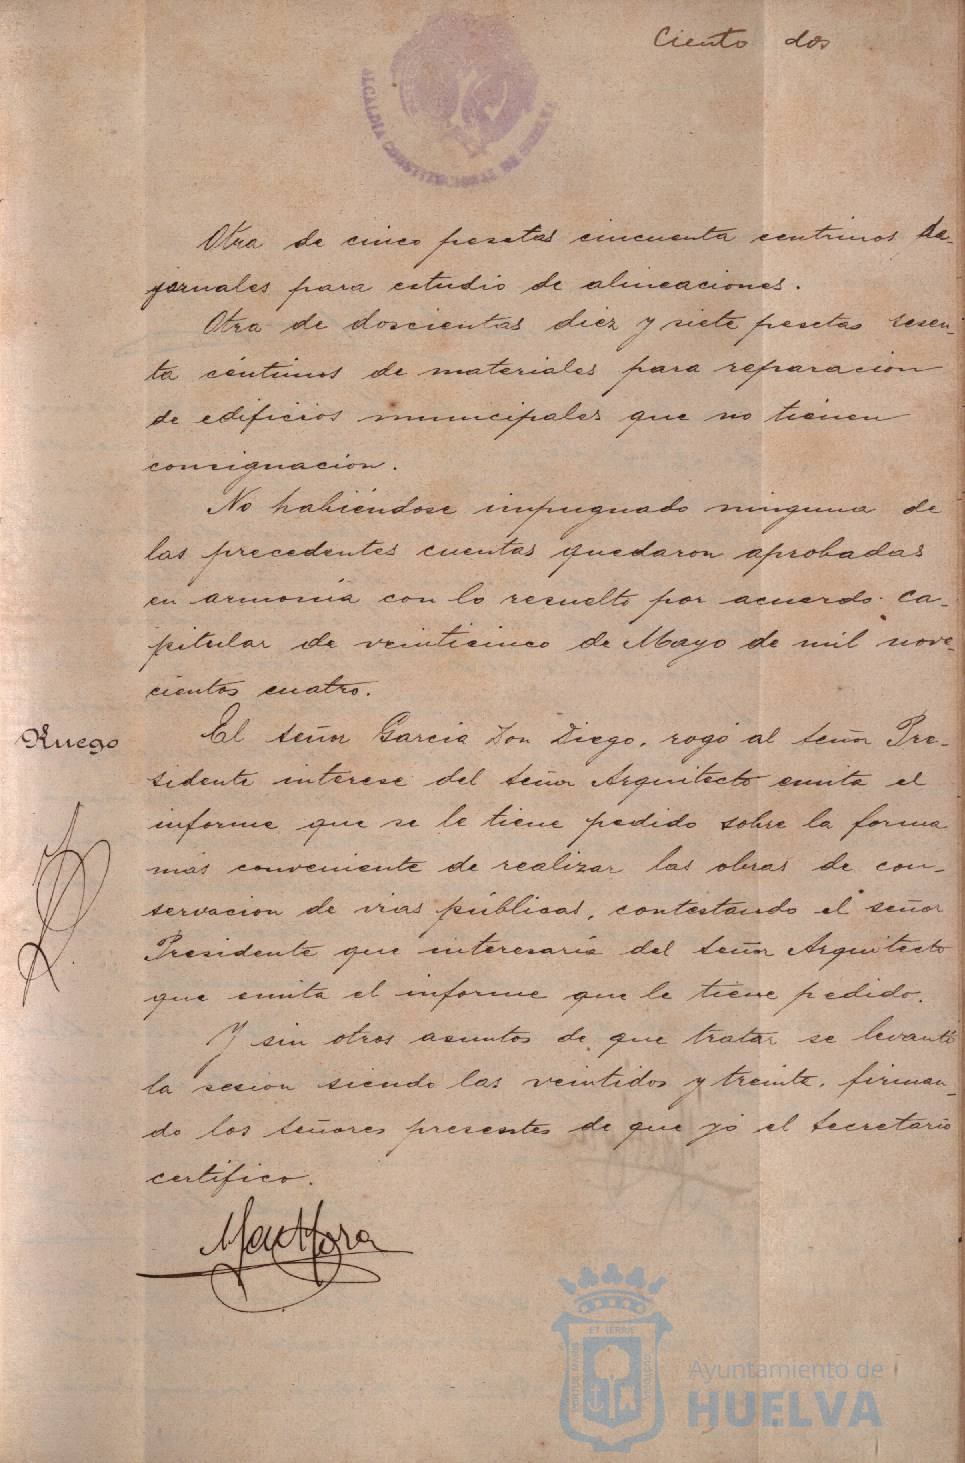 Ciento dos
ALCALDIA CONSTITUCIONAL DE HUELVA
Otra de cinco pesetas cincuenta centimos de
jornales para estudio de alineaciones.
Otra de doscientas diez y siete pesetas sesen-
ta céntimos de materiales para reparacion
de edificios municipales que no tienen
consignacion.
No habiéndose impugnado ninguna de
las precedentes cuentas quedaron aprobadas
en armonia con lo resuelto por acuerdo ca-
pitular de veinticinco de Mayo de mil nove-
cientos cuatro.
Ruego
El señor Garcia Don Diego, rogó al señor Pre-
sidente interese del señor Arquitecto emita el
informe que se le tiene pedido sobre la forma
mas conveniente de realizar las obras de con-
servacion de vias públicas, contestando el señor
Presidente que interesaria del señor Arquitecto
que emita el informe que le tiene pedido.
Y sin otros asuntos de que tratar se levantó
la sesion siendo las veintidos y treinta, firman-
do los señores presentes de que yó el secretario
certifico.
Mora
ET TERRIS
PORTUS MARIS
CUSTODIA
Ayuntamiento de
HUELVA